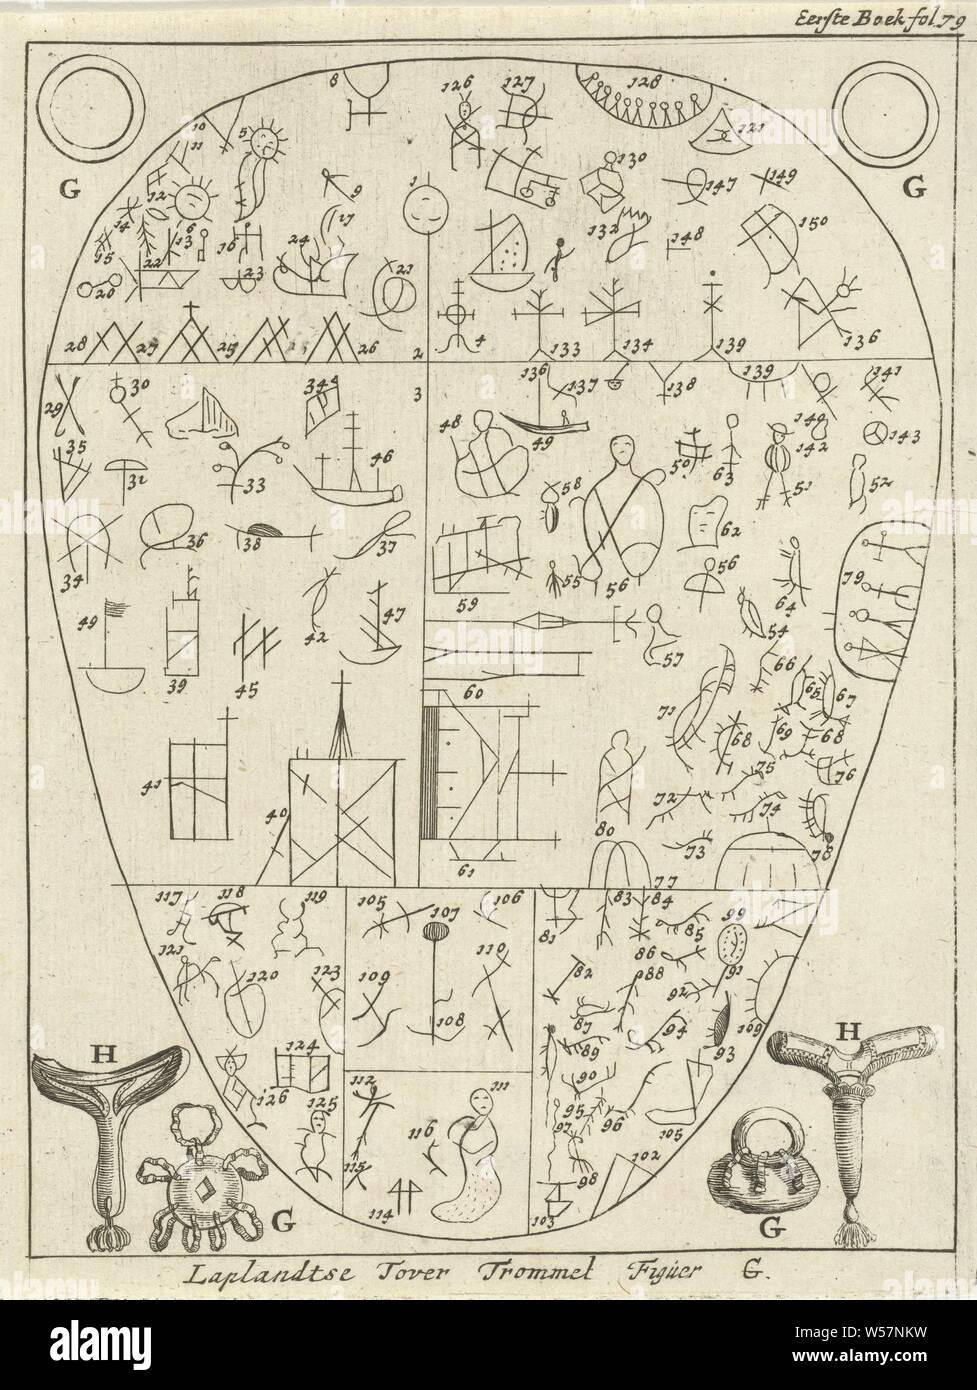 Eerste Boek fol. 79
G
G
8 126 127 128
10 5 121
11
9 1 130 147 149
12
14 6 17 132 150
15 22 13 16 24 148
20 23 21
4
28 27 25 26 2 133 134 139 136
136 137 138 139 141
29 30 34 3
35 48 49 140 142 143
32 33 46 58 50 63 51 52
34 36 38 37 62
59 55 56 56 64 79
49 39 45 42 47 57 54
60 71 66 65 67
68 69 68
75 76
41 40 72 74
61 80 73 78
77
117 118 119 105 107 106 81 83 84 85 99
121 86
120 123 109 110 82 88 92 91
108 87 94 93 109
89
H
H
124 90
126 125 112 111 95 96 105
97
116
115 98 102
114 103
G
G
Laplandtse Tover Trommel Figuer G.
alamy
W57NKW
www.alamy.com